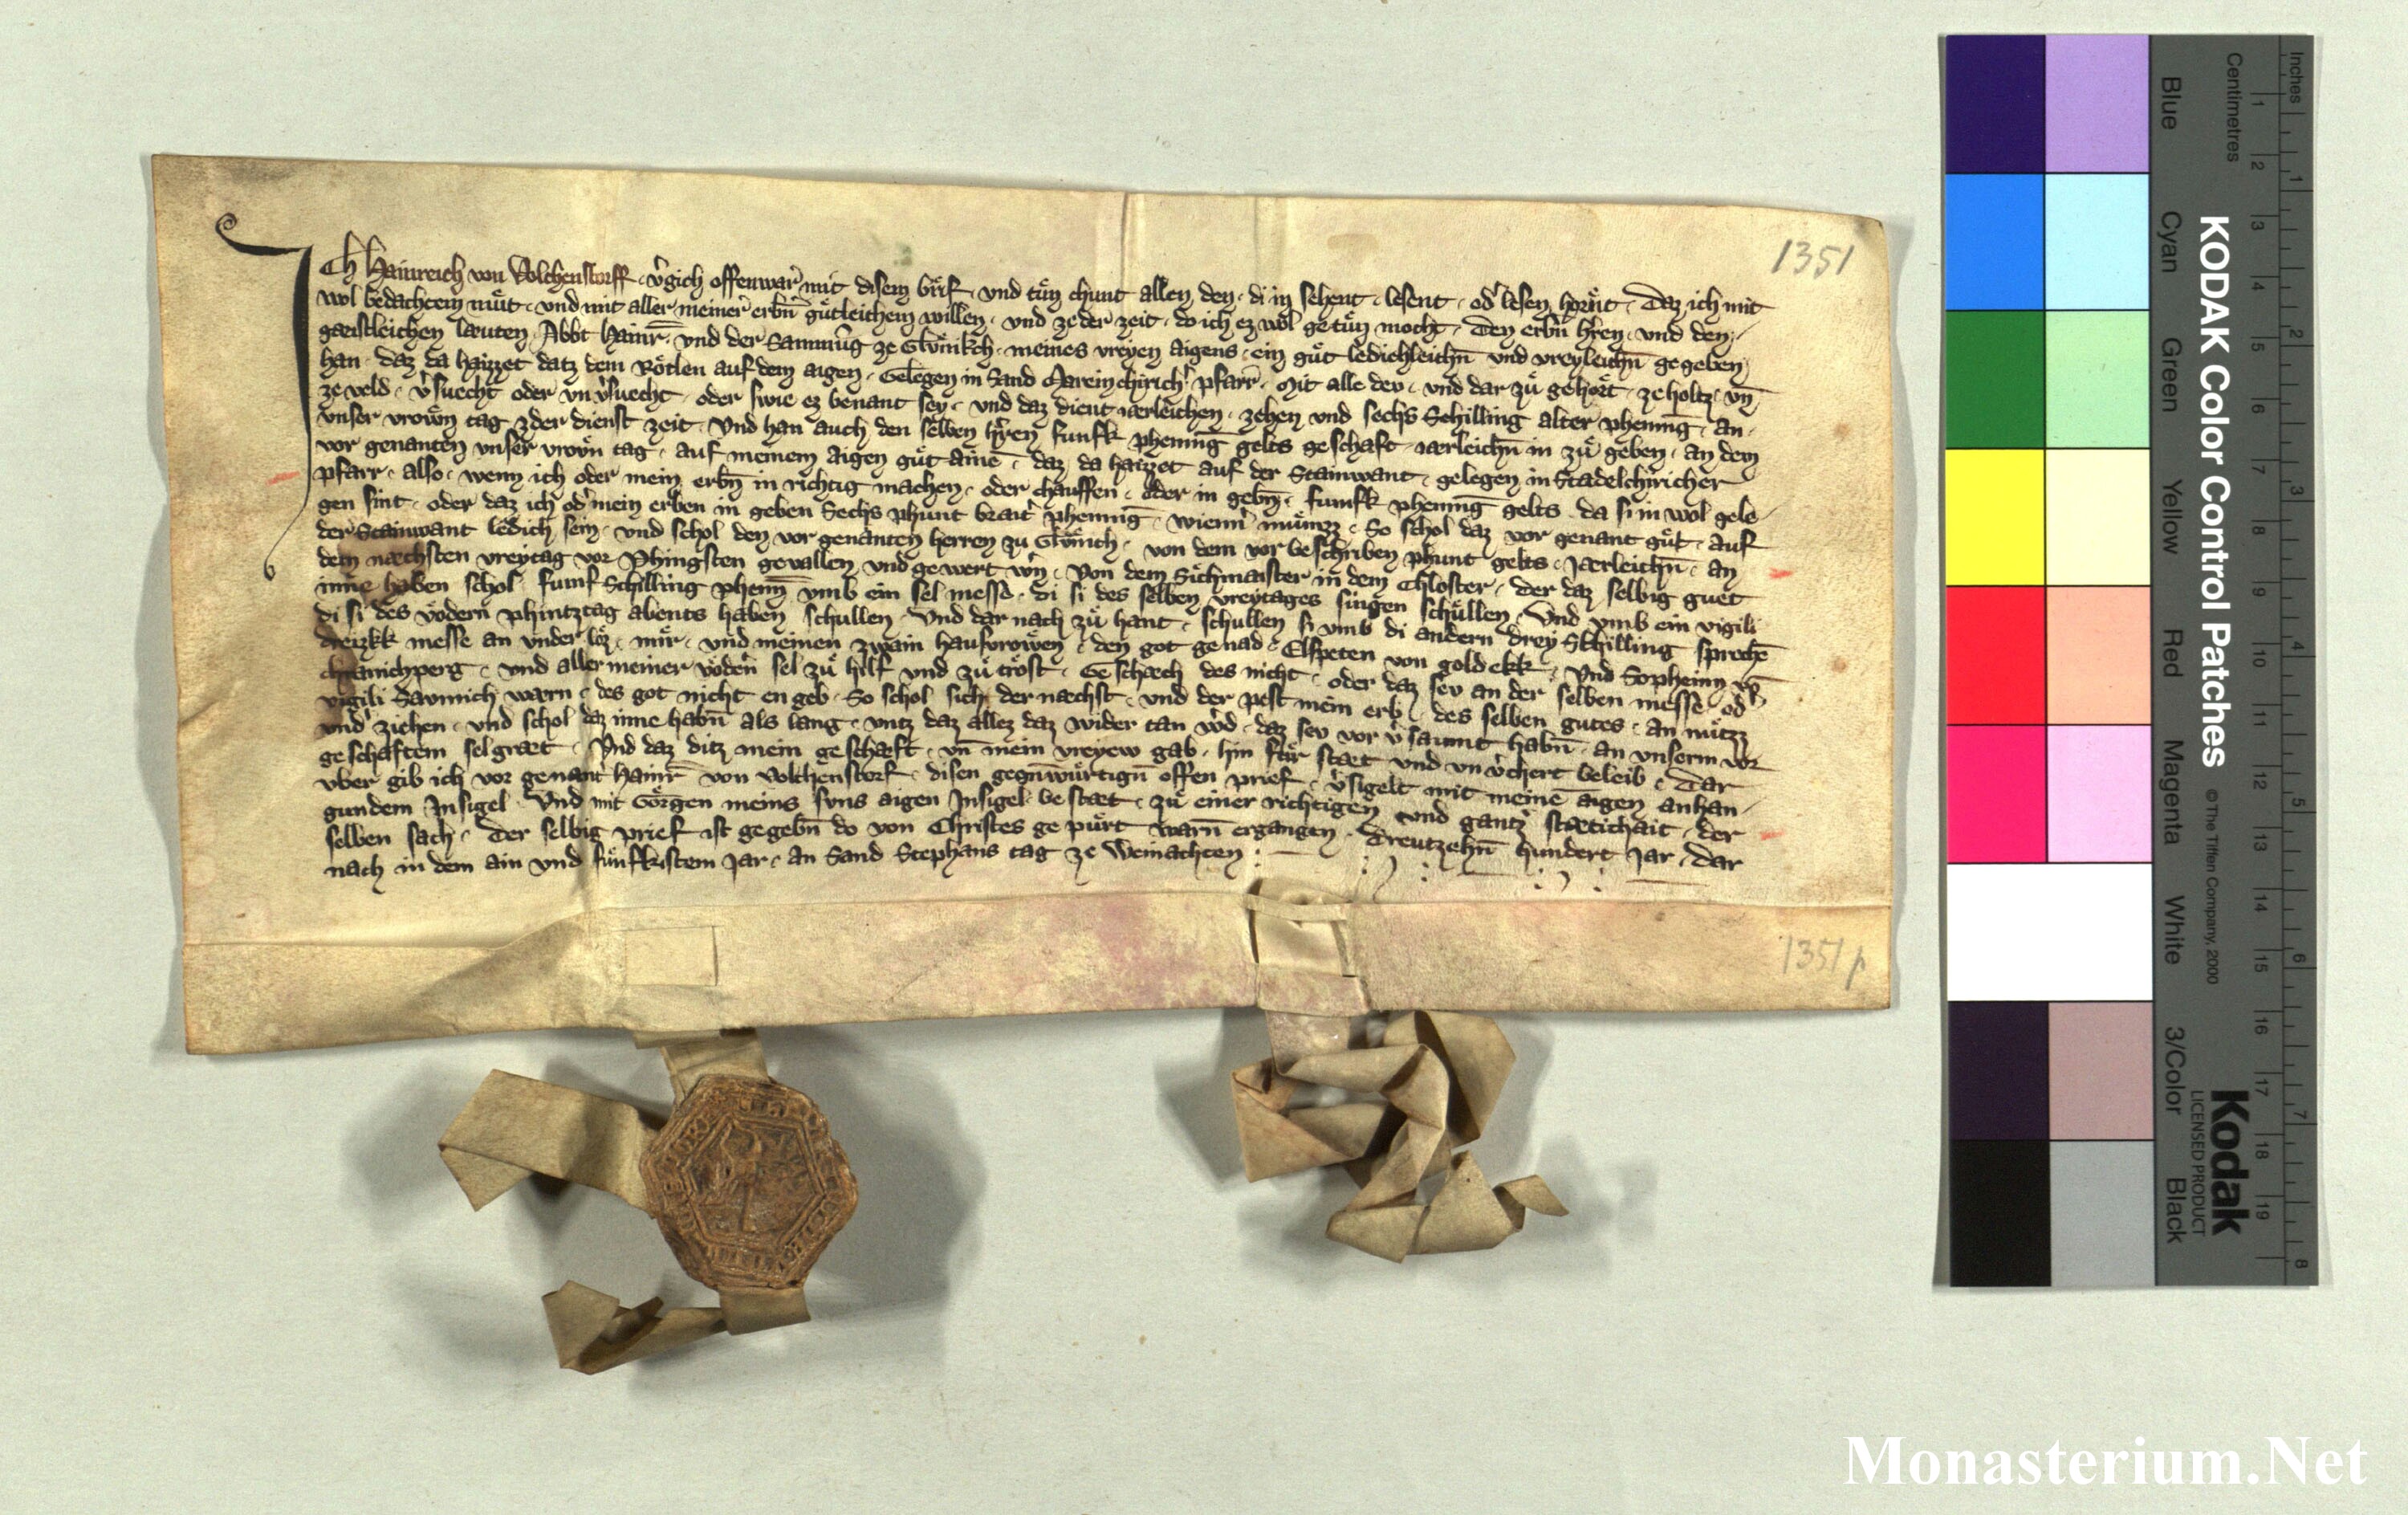 1351
Ich Hainreich von Volchenstorff v̉gich offenwar̉ mit disem brif und tuͤn chunt allen den di in sehent lesent od̉ lesen hoͤrent Daz ich mit
wol bedachtem muͤt und mit aller meiner̉ erbn̄ guͤtleichem willen und ze der zeit do ich ez wol getuͤn mocht Den erbn̄ hr̉en und den
gaistleichen laeuten Abbt Hainr̄ und der Samnu̅g ze Glunikch meines vreyen aigens ein guͤt ledichleichn̄ und vreyleichn̄ gegeben
han daz da haizzet datz dem Roͤtlen auf dem aigen Gelegen in Sand Mareinchirich̉ pfarr̄ Mit alle dev und dar zuͤ gehort ze holtz un̄
ze veld v̉suecht oder un v̉suecht oder swie ez benant sey und daz dient iaerleichen zehen und sechs Schilling alter phening̅ an
unser vrowͤn tag zder dienst zeit Und han auch den selben hr̉ren funfk phening̅ gelts geschaft iaerleichn̄ in zuͤ geben an dem
vor genanten unser vrowͤn tag auf meinem aigen guͤt aine̅ daz da haizzet auf der Stainwant gelegen in Stadelchiricher
pfarr also wenn ich oder mein erbn̄ in richtig machen oder chauffen oder in gebn̄ funfk phening̅ gelts da si in wol gele
gen sint oder daz ich od̉ mein erben in geben Sechs phunt brait̉ phening̅ wienn̉ muͤnzz So schol daz vor genant guͤt auf
der Stainwant ledich sein und schol den vor genanten herren zu Glunich von dem vor beschriben phunt gelts Jaerleichn̄ an
dem naechsten vreytag vor Phingsten gevallen und gewert wn̉ Von dem Sichmaister in dem Chloster der daz selbig guet
inne haben schol funf Schilling phenn̄ umb ein sel messe di si des selben vreytages singen schullen Und umb ein vigili
di si des voͤdern phintztag abents haben schullen Und dar nach zuͤ hant schullen si umb di andern drey Schilling spreche̅
dreizkk messe an under loz mir und meinen zwain hausvrowen den got genad Elspeten von goldekk Und Sopheinn vo̅
chranichperg und aller meiner voͤdern̄ sel zuͤ hilf und zuͤ trost Geschaech des nicht oder daz sev an der selben messe od̉
vigili Saumich warn des got nicht en geb So schol sich der naechst und der pest mein erb des selben gutes an nuͤtzz
und̉ ziehen und schol daz inne habn̄ als lang untz daz allez daz wider tan wd̉ daz sev vor v̉saumt habn̄ an unserm vor
geschaftem selgraet Und daz ditz mein geschaeft un̄ mein vreyew gab hin fuͤr staet und un v̉chert beleib Dar
uber gib ich vor genant̉ Hainr̄ von Volchenstorf disen gegnwuͤrtign̄ offen prief v̉sigelt mit meine̅ aigen anhan
gundem Insigel Und mit Goͤrgen meins suns aigen Insigel bestaet zuͤ einer richtigen und gantz̉ staetichait der
selben sach Der selbig prief ist gegebn̄ do von Christes gepuͤrt warn̄ ergangen Dreutzehn̄ hundert Jar Dar
nach in dem ain und funfkistem Jar an Sand Stephans tag ze Weinachten
1351
KODAK Color Control Patches
© The Tiffen Company, 2000
Kodak
LICENSED PRODUCT
Blue Cyan Green Yellow Red Magenta White 3/Color Black
Inches 1 2 3 4 5 6 7 8
Centimetres 1 2 3 4 5 6 7 8 9 10 11 12 13 14 15 16 17 18 19
Monasterium.Net